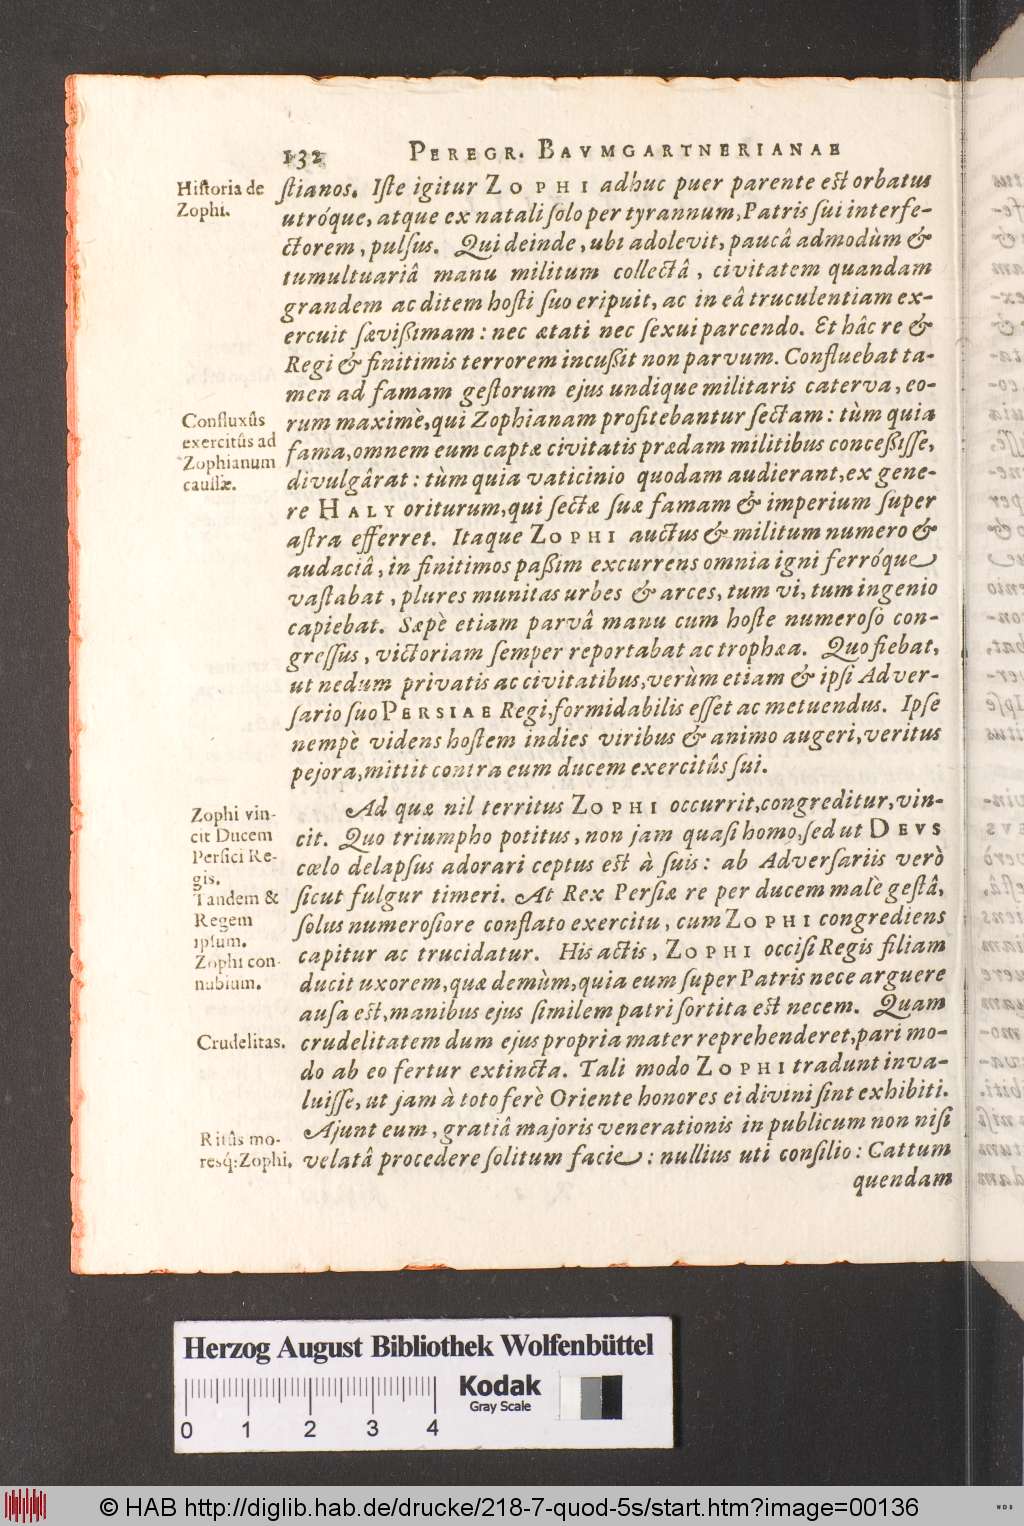 132 PEREGR. BAVMGARTNERIANAE
Historia de
Zophi.
stianos. Iste igitur ZOPHI adhuc puer parente est orbatus
utróque, atque ex natali solo per tyrannum, Patris sui interfe-
ctorem, pulsus. Qui deinde, ubi adolevit, paucâ admodùm &
tumultuariâ manu militum collectâ, civitatem quandam
grandem ac ditem hosti suo eripuit, ac in eâ truculentiam ex-
ercuit sævißimam: nec ætati nec sexui parcendo. Et hâc re &
Regi & finitimis terrorem incußit non parvum. Confluebat ta-
men ad famam gestorum ejus undique militaris caterva, eo-
Confluxûs
exercitûs ad
Zophianum
caussæ.
rum maximè, qui Zophianam profitebantur sectam: tùm quia
fama, omnem eum captæ civitatis prædam militibus conceßisse,
divulgârat: tùm quia vaticinio quodam audierant, ex gene-
re HALY oriturum, qui sectæ suæ famam & imperium super
astra efferret. Itaque ZOPHI auctus & militum numero &
audaciâ, in finitimos paßim excurrens omnia igni ferróque
vastabat, plures munitas urbes & arces, tum vi, tum ingenio
capiebat. Sæpè etiam parvâ manu cum hoste numeroso con-
gressus, victoriam semper reportabat ac trophæa. Quo fiebat,
ut nedum privatis ac civitatibus, verùm etiam & ipsi Adver-
sario suo PERSIAE Regi, formidabilis esset ac metuendus. Ipse
nempè videns hostem indies viribus & animo augeri, veritus
pejora, mittit contra eum ducem exercitûs sui.
Zophi vin-
cit Ducem
Persici Re-
gis.
Tandem &
Regem
ipsum.
Zophi con-
nubium.
Ad quæ nil territus ZOPHI occurrit, congreditur, vin-
cit. Quo triumpho potitus, non jam quasi homo, sed ut DEVS
cœlo delapsus adorari ceptus est à suis: ab Adversariis verò
sicut fulgur timeri. At Rex Persiæ re per ducem malè gestâ,
solus numerosiore conflato exercitu, cum ZOPHI congrediens
capitur ac trucidatur. His actis, ZOPHI occisi Regis filiam
ducit uxorem, quæ demùm, quia eum super Patris nece arguere
ausa est, manibus ejus similem patri sortita est necem. Quam
Crudelitas.
crudelitatem dum ejus propria mater reprehenderet, pari mo-
do ab eo fertur extincta. Tali modo ZOPHI tradunt inva-
luisse, ut jam à toto ferè Oriente honores ei divini sint exhibiti.
Ritûs mo-
resq́;Zophi.
Ajunt eum, gratiâ majoris venerationis in publicum non nisi
velatâ procedere solitum facie: nullius uti consilio: Cattum
quendam
Herzog August Bibliothek Wolfenbüttel
Kodak
Gray Scale
0 1 2 3 4
© HAB http://diglib.hab.de/drucke/218-7-quod-5s/start.htm?image=00136